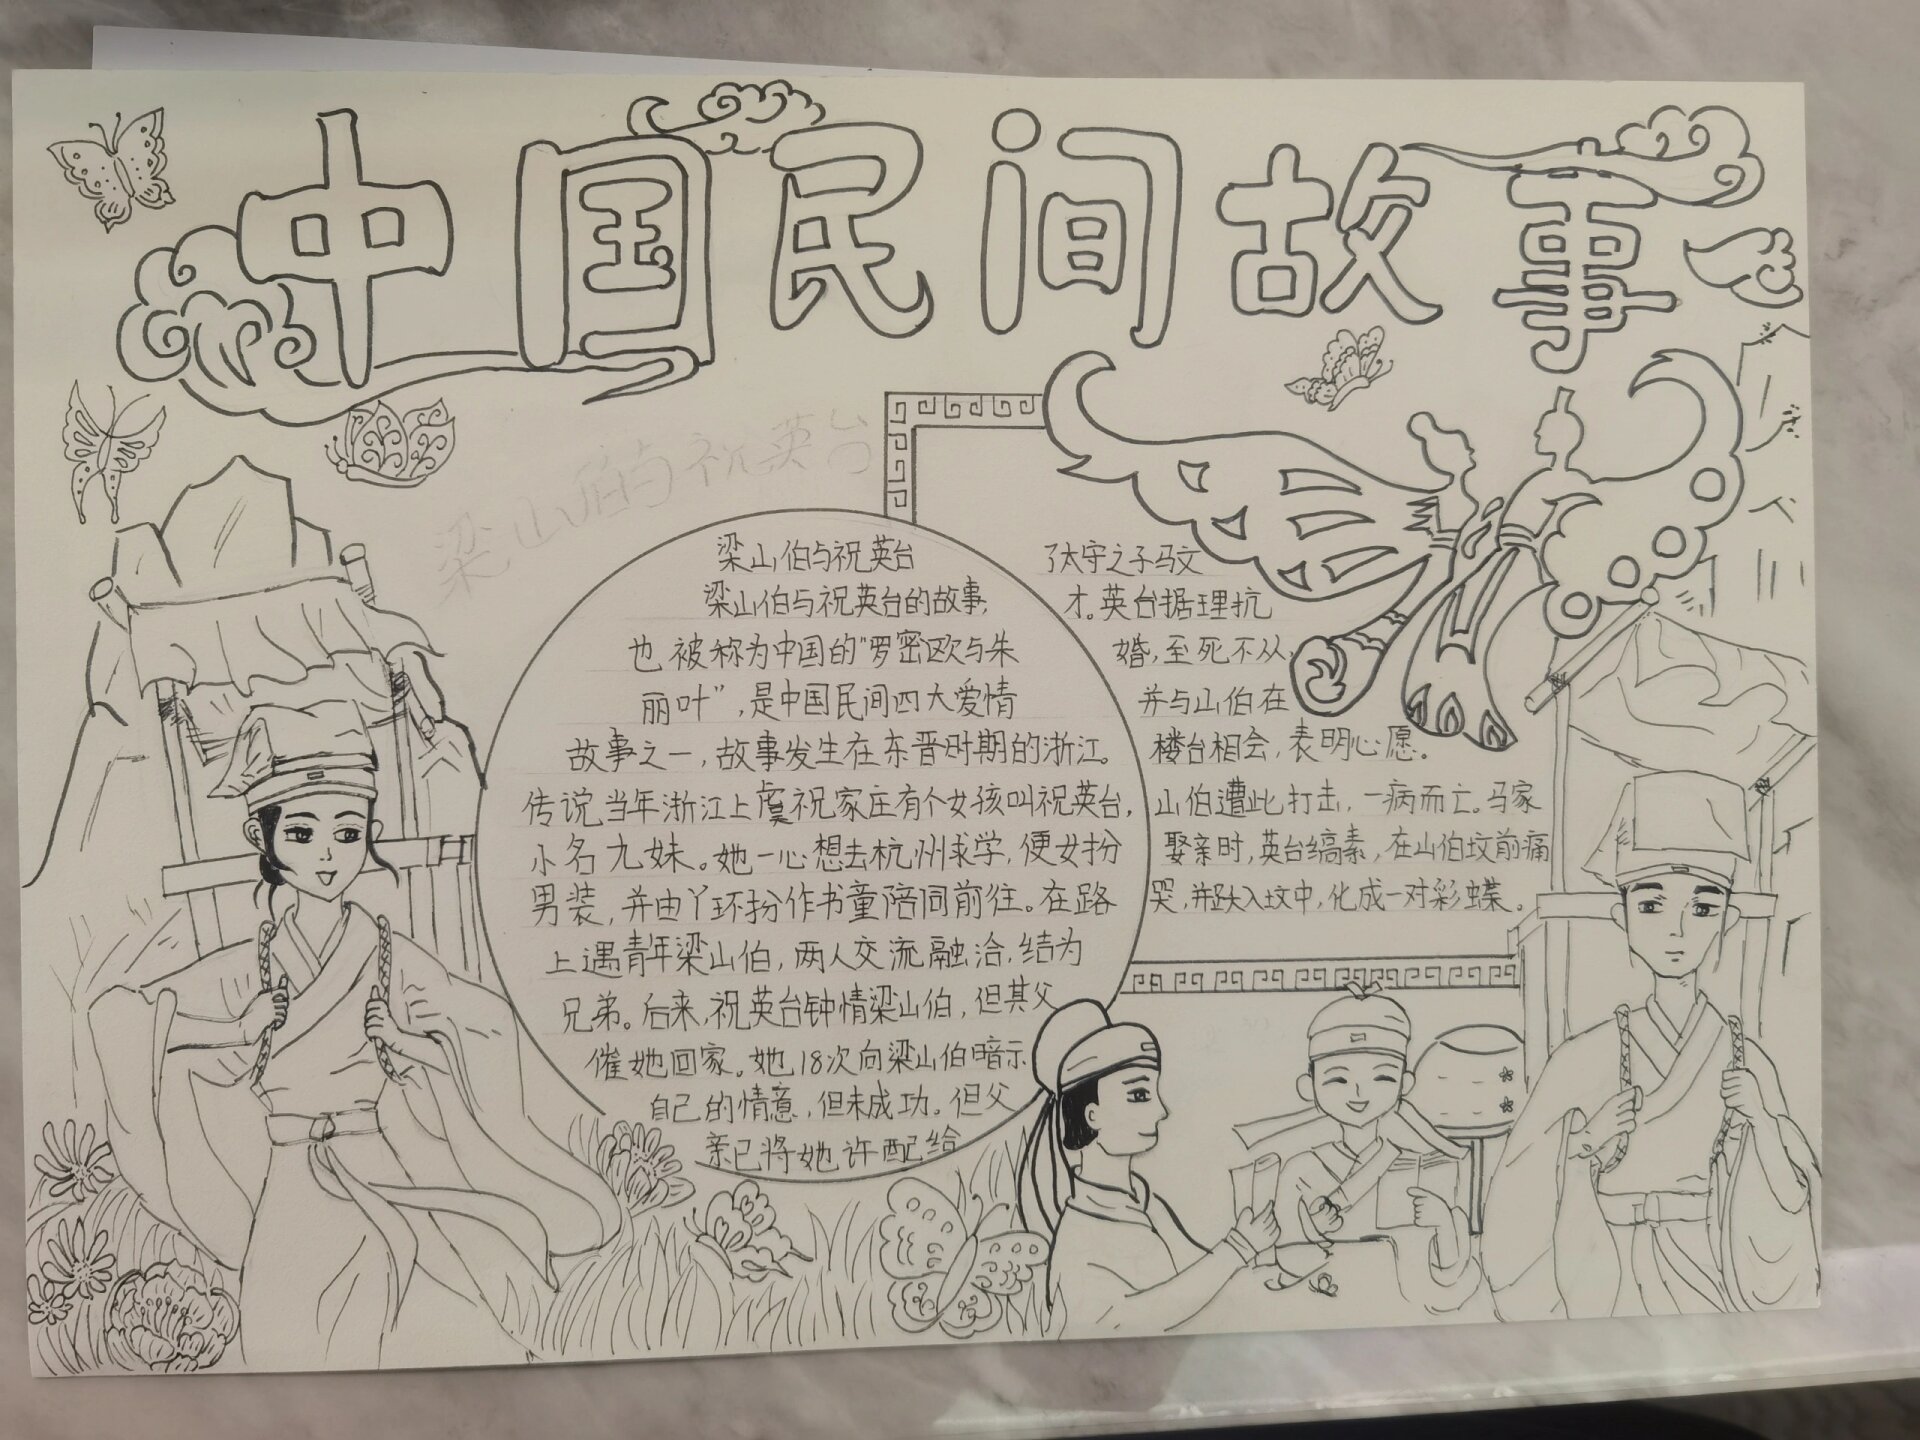 中国民间故事
梁山伯与祝英台
梁山伯与祝英台
梁山伯与祝英台的故事,
也被称为中国的“罗密欧与朱
丽叶”,是中国民间四大爱情
故事之一,故事发生在东晋时期的浙江。
传说当年浙江上虞祝家庄有个女孩叫祝英台,
小名九妹。她一心想去杭州求学,便女扮
男装,并由丫环扮作书童陪同前往。在路
上遇青年梁山伯,两人交流融洽,结为
兄弟。后来,祝英台钟情梁山伯,但其父
催她回家。她18次向梁山伯暗示
自己的情意,但未成功。但父
亲已将她许配给
了太守之子马文
才。英台据理抗
婚,至死不从,
并与山伯在
楼台相会,表明心愿。
山伯遭此打击,一病而亡。马家
娶亲时,英台缟素,在山伯坟前痛
哭,并跃入坟中,化成一对彩蝶。